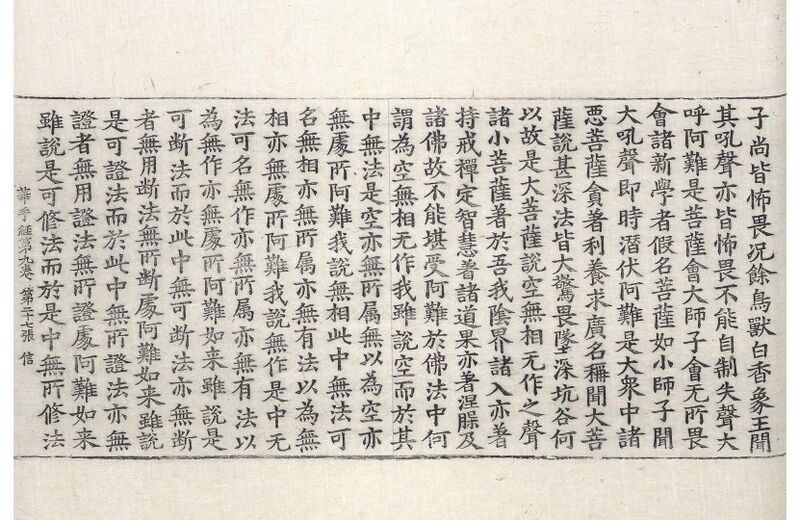 子尚皆怖畏况餘鳥獸白香象王聞
其吼聲亦皆怖畏不能自制失聲大
呼阿難是菩薩會大師子會无所畏
會諸新學者假名菩薩如小師子聞
大吼聲即時潜伏阿難是大衆中諸
惡菩薩貪著利養求廣名稱聞大菩
薩說甚深法皆大驚畏墜深坑谷何
以故是大菩薩說空無相无作之聲
諸小菩薩著於吾我陰界諸入亦著
持戒禪定智慧著諸道果亦著涅槃及
諸佛故不能堪受阿難於佛法中何
謂為空無相无作我雖說空而於其
中無法是空亦無所属無以為空亦
無處所阿難我說無相此中無法可
名無相亦無所属亦無有法以為無
相亦無處所阿難我說無作是中无
法可名無作亦無所属亦無有法以
為無作亦無處所阿難如来雖說是
可断法而於此中無可断法亦無断
者無用断法無所断處阿難如来雖說
是可證法而於此中無所證法亦無
證者無用證法無所證處阿難如来
雖說是可修法而於是中無所修法
華手経第九卷 第二十七張 信